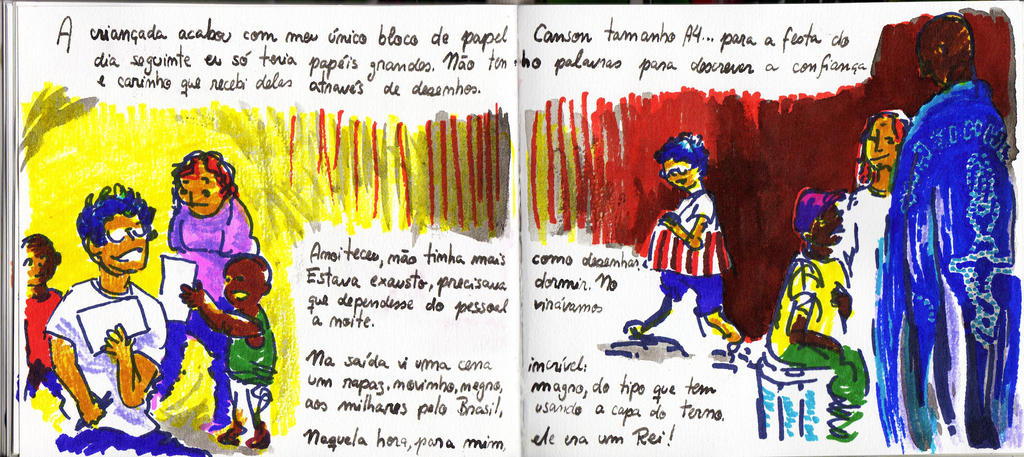 A criançada acabou com meu único bloco de papel Canson tamanho A4... para a festa do
dia seguinte eu só teria papéis grandes. Não tenho palavras para descrever a confiança
e carinho que recebi deles através de desenhos.
Anoiteceu, não tinha mais como desenhar.
Estava exausto, precisava dormir. No
que dependesse do pessoal virávamos
a noite.
Na saída vi uma cena incrível:
um rapaz, novinho, negro, magro, do tipo que tem
aos milhares pelo Brasil, usando a capa do terno.
Naquela hora, para mim, ele era um Rei!